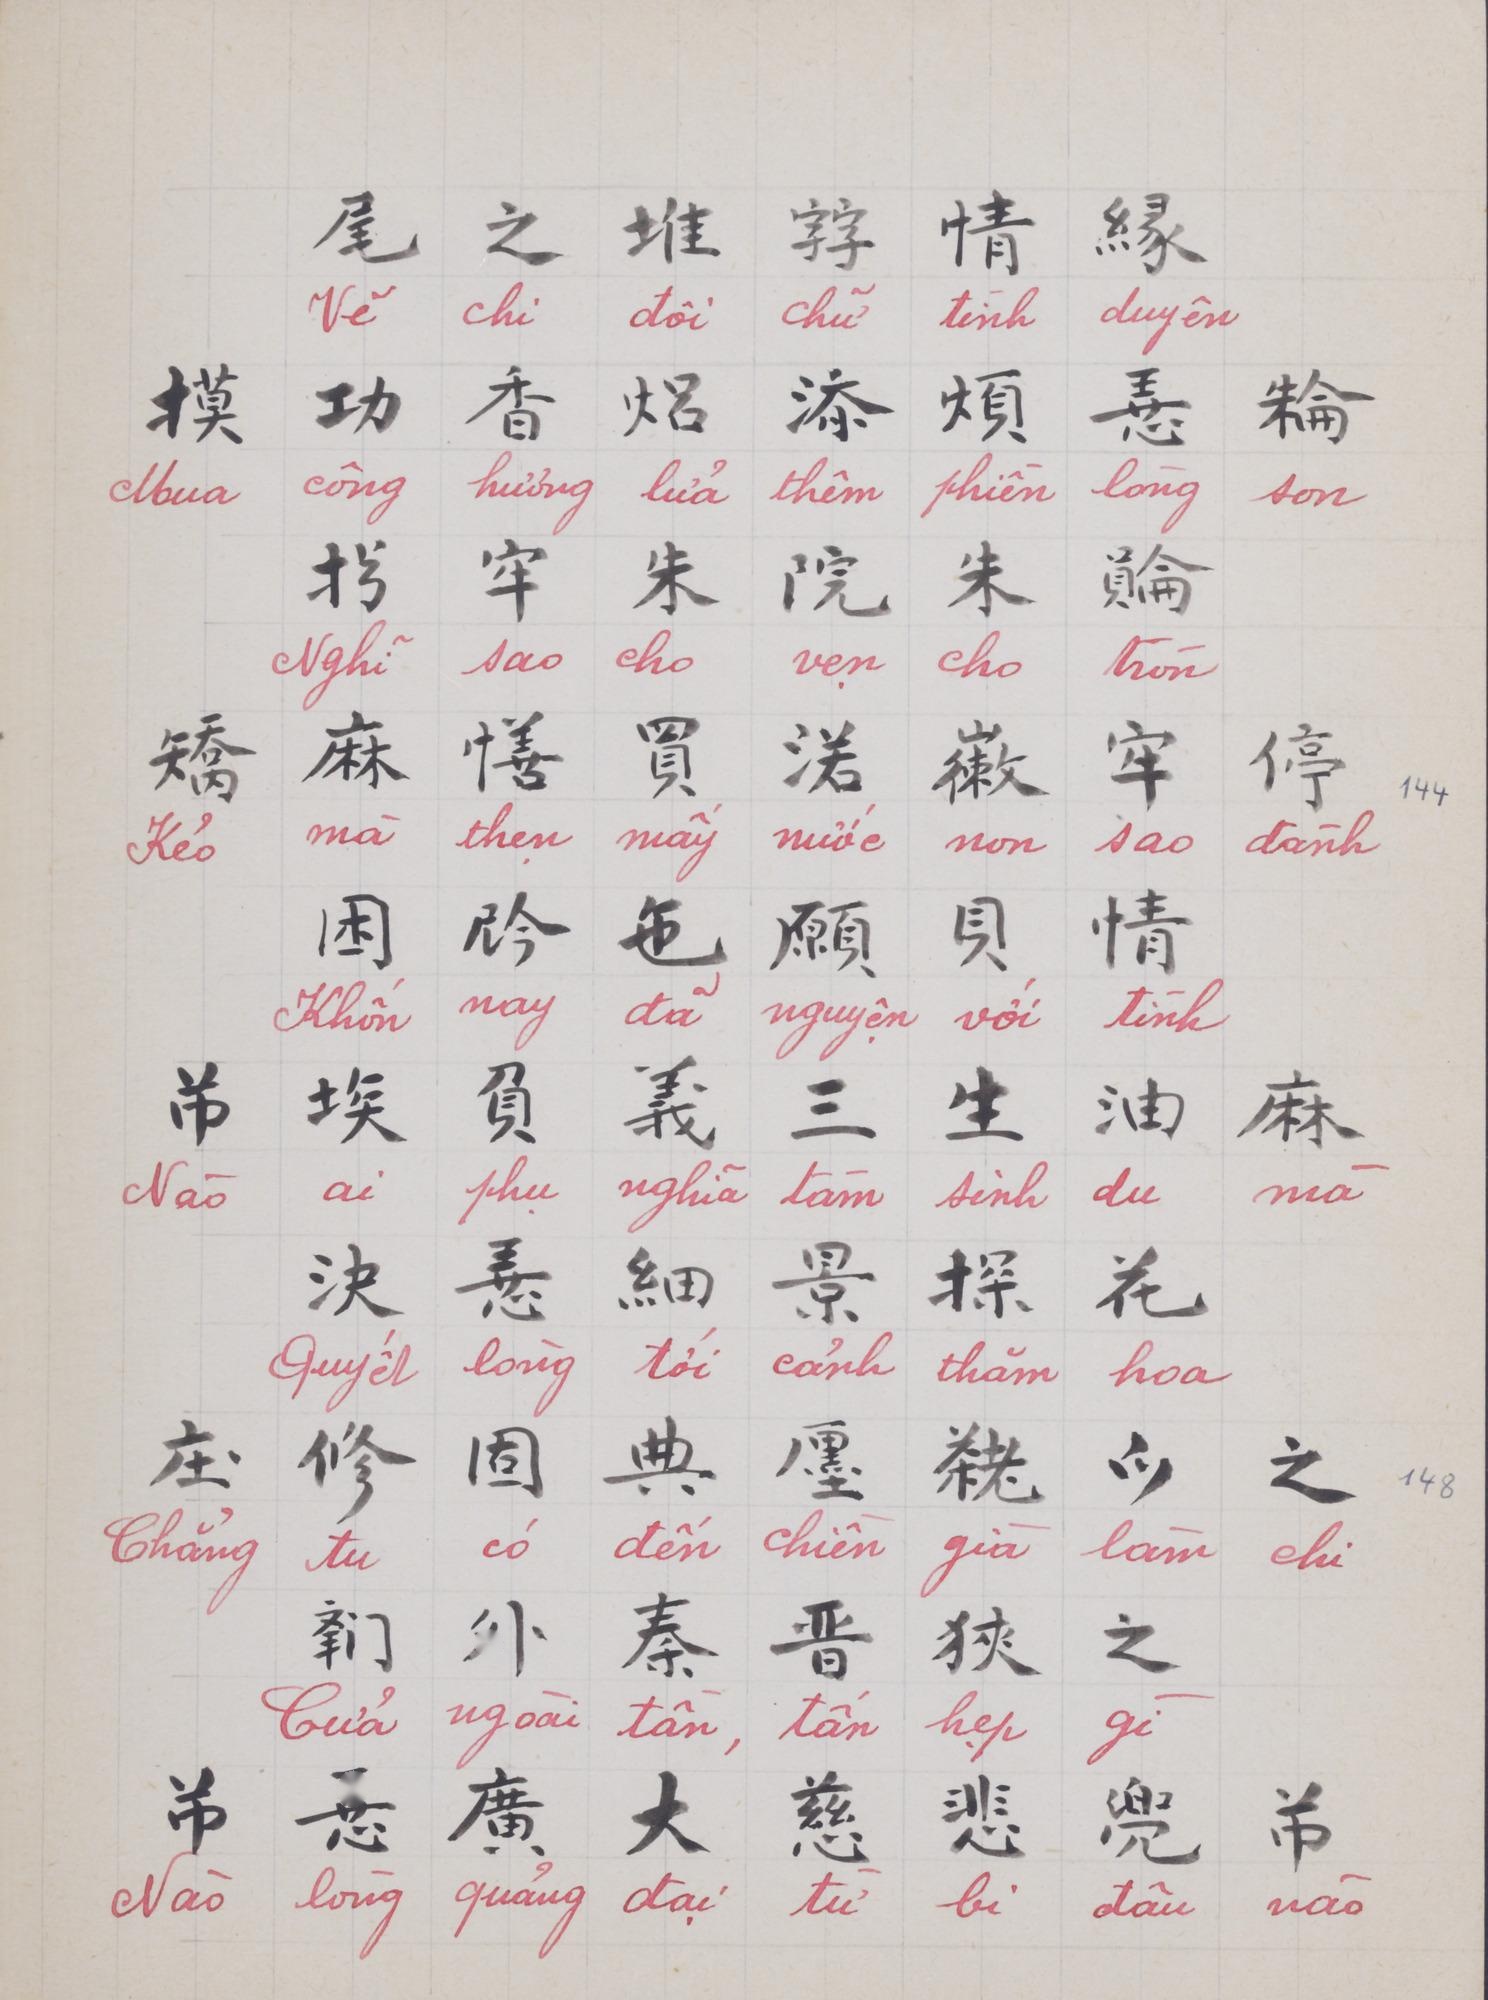 尾 之 堆 𡨸 情 緣
Vẽ chi đôi chữ tình duyên
摸 功 香 焒 添 煩 𢚸 𣘈
Mua công hương lửa thêm phiền lòng son
𢪀 牢 朱 院 朱 𧷺
Nghĩ sao cho vẹn cho tròn
矯 麻 𢢆 買 渃 𡽫 牢 停 144
Kẻo mà thẹn mấy nước non sao đành
困 𫢩 㐌 願 貝 情
Khốn nay đã nguyện với tình
𱜢 埃 負 義 三 生 油 麻
Nào ai phụ nghĩa tam sinh du mà
決 𢚸 細 景 探 花
Quyết lòng tới cảnh thăm hoa
庄 修 固 典 廛 𦓅 𫜵 之 148
Chẳng tu có đến chiền già làm chi
𨷶 外 秦 晋 狹 之
Cửa ngoài tần, tấn hẹp gì
𱜢 𢚸 廣 大 慈 悲 兜 𱜢
Nào lòng quảng đại từ bi đâu nào